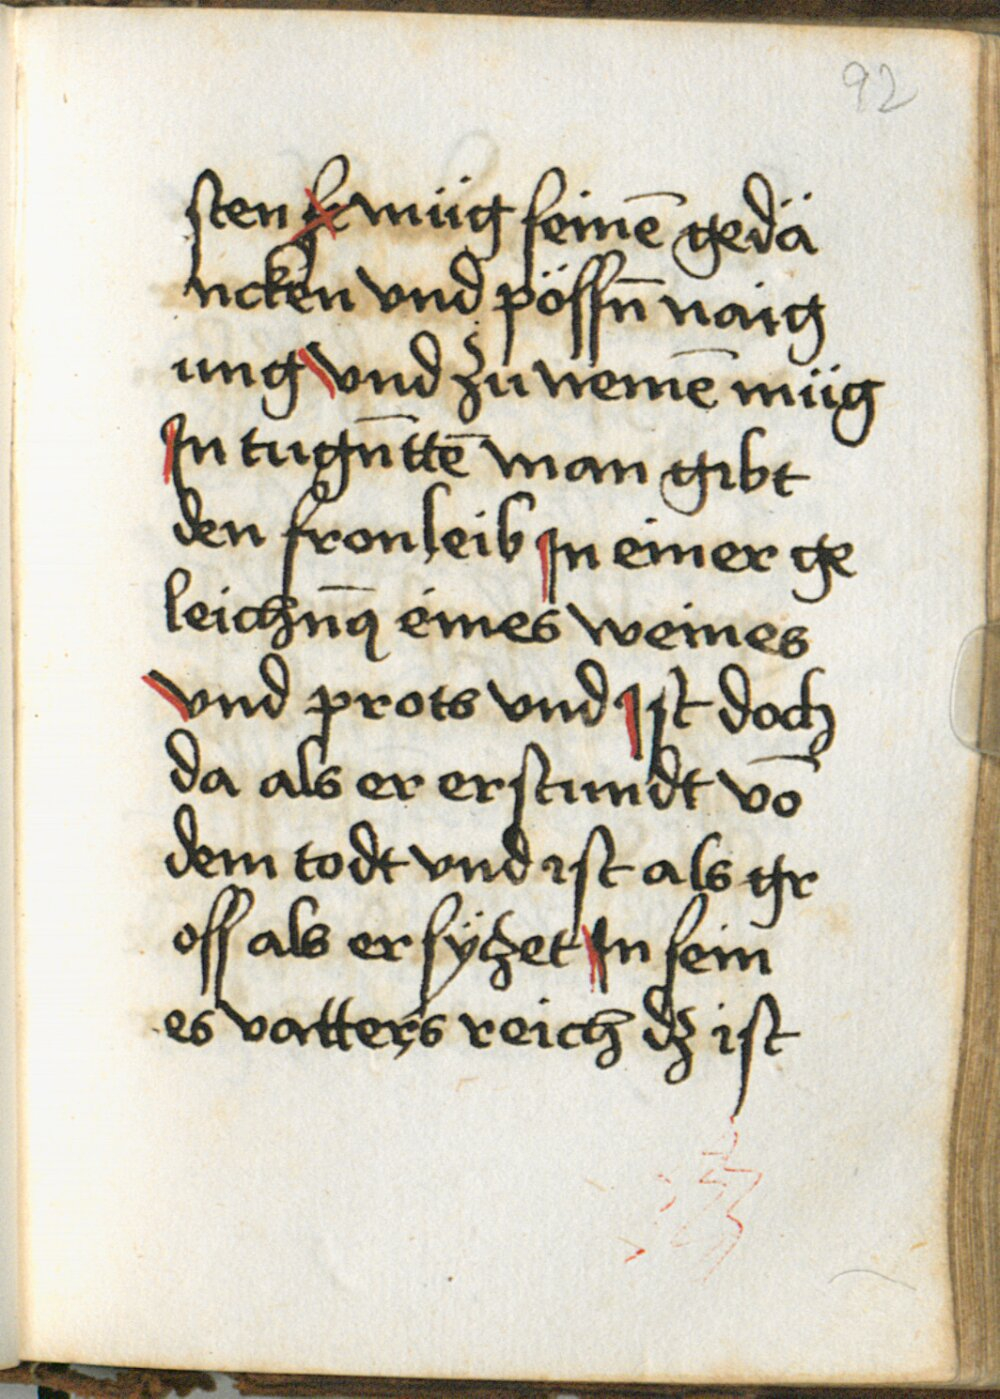 92
sten müg seinē gedä
ncken vnd pössn̄ naig
ung vnd zu nemē müg
In tugn̄ttē man gibt
den fronleib In einer ge
leichn̄g eines weines
vnd prots vnd Ist doch
da als er erstundt vō
dem todt vnd ist als gr
oss als er syzet In sein
es vatters reich dz ist